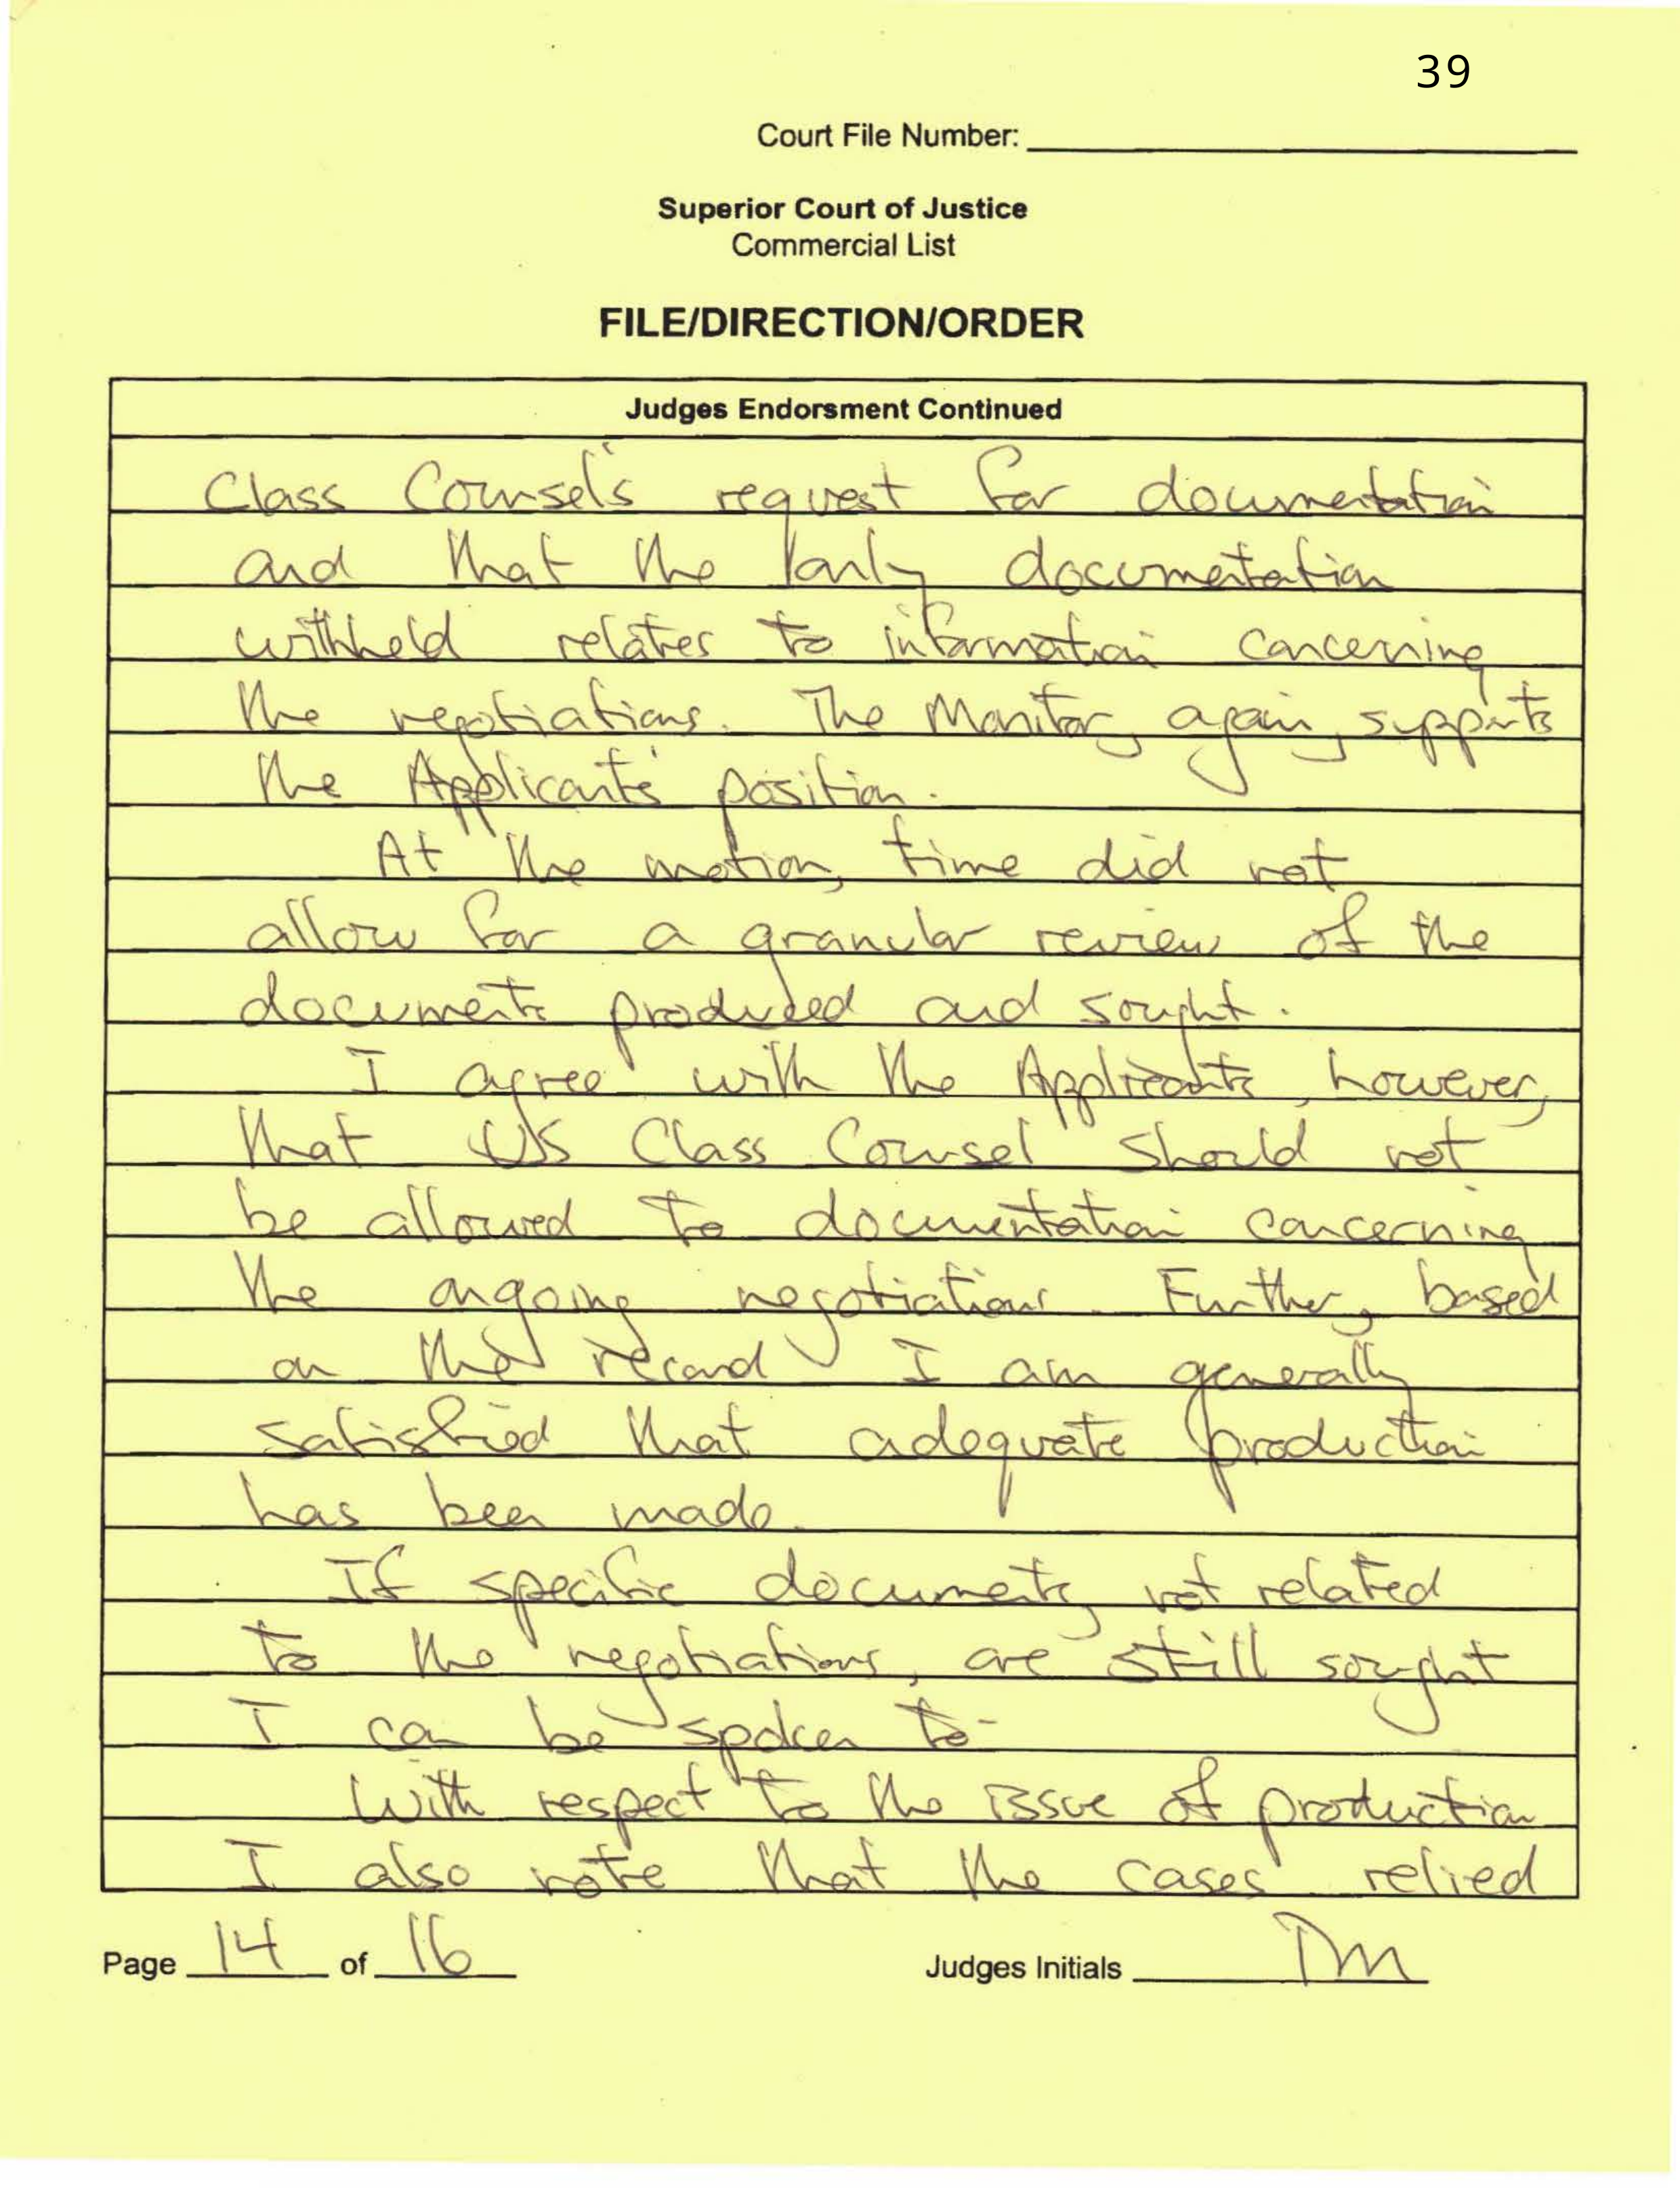 39
Court File Number:
Superior Court of Justice
Commercial List
FILE/DIRECTION/ORDER
Judges Endorsment Continued
Class Counsel's request for documentation
and that the only documentation
withheld relates to information concerning
the negotiations. The Monitor, again, supports
the Applicants' position.
At the motion, time did not
allow for a granular review of the
documents produced and sought.
I agree with the Applicants, however,
that US Class Counsel should not
be allowed to documentation concerning
the ongoing negotiations. Further, based
on the record I am generally
satisfied that adequate production
has been made.
If specific documents, not related
to the negotiations, are still sought
I can be spoken to.
With respect to the issue of production
I also note that the cases relied
Page 14 of 16
Judges Initials TM